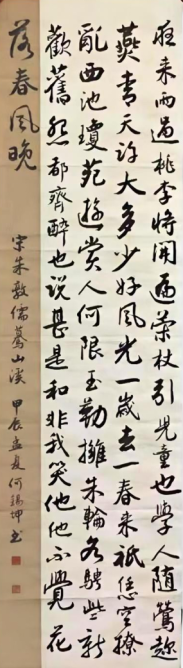 夜來雨過桃李將開遍策杖引兒童也學人隨鶯趁
燕青天許大多少好風光一歲去一春來祇恁空撩
亂西池瓊苑遊賞人何限玉勒擁朱輪各騁些新
歡舊怨都齊醉也說甚是和非我笑他他不覺花
落春風晚
宋朱敦儒驀山溪 甲辰孟夏何錫坤書